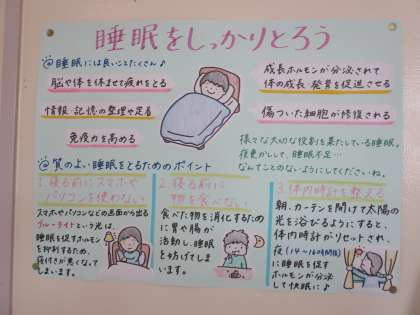 睡眠をしっかりとろう
@睡眠には良いことたくさん♪
脳や体を休ませて疲れをとる
情報・記憶の整理や定着
免疫力を高める
成長ホルモンが分泌されて
体の成長・発育を促進させる
傷ついた細胞が修復される
様々な大切な役割を果たしている睡眠。
夜更かしして、睡眠不足…
なんてことのないようにしてくださいね。
@質のよい睡眠をとるためのポイント
1.寝る前にスマホや
パソコンを使わない
スマホやパソコンなどの画面から出る
ブルーライトという光は、
睡眠を促すホルモン
を抑制するため、
寝付きが悪くなって
しまいます。
2.寝る前に
物を食べない
食べた物を消化するため
に胃や腸が
活動し、睡眠
を妨げてしま
います。
3.体内時計を整える
朝、カーテンを開けて太陽の
光を浴びるようにすると、
体内時計がリセットされ、
夜(14〜16時間後)
に睡眠を促す
ホルモンが分泌
して快眠に♪